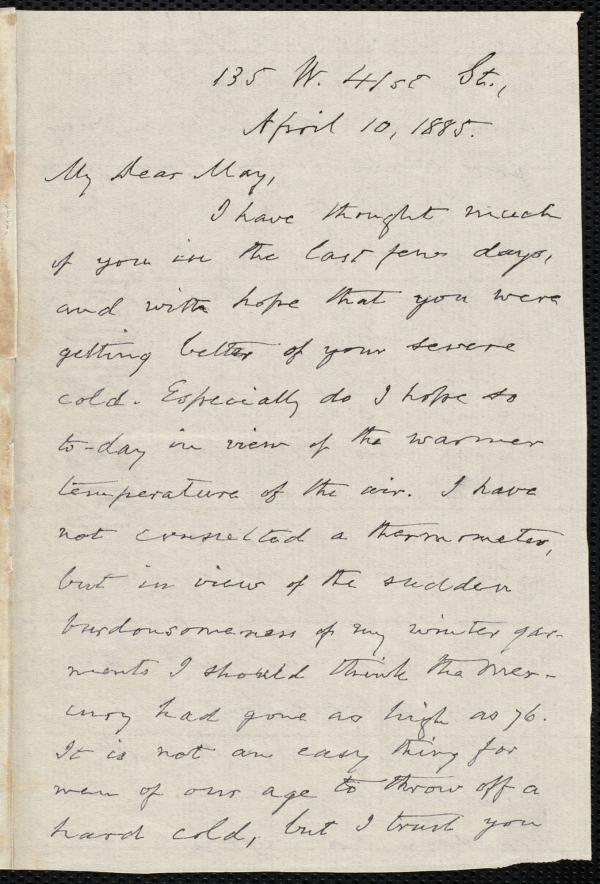 135 W. 41st St.,
April 10, 1885.
My Dear May,
I have thought much
of you in the last few days,
and with hope that you were
getting better of your severe
cold. Especially do I hope so
to-day in view of the warmer
temperature of the air. I have
not consulted a thermometer,
but in view of the sudden
burdonsomeness of my winter gar-
ments I should think the mer-
cury had gone as high as 76.
It is not an easy thing for
men of our age to throw off a
hard cold, but I trust you